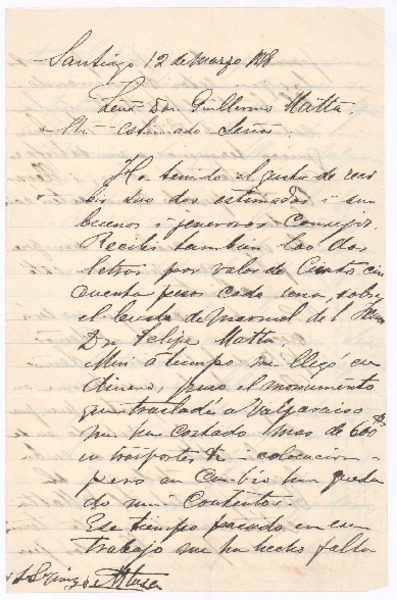 Santiago 12 de Marzo
Señor Don Guillermo Matta.
Mi estimado Señor:
He tenido el gusto de reci
bir sus dos estimadas i sus
buenos i jenerosos Consejos.
Recibi tambien las dos
letras por valor de Ciento cin
cuenta pesos cada una, sobre
el busto de marmol del
Dn Felipe Matta.
Mui a tiempo me llegó ese
dinero, pues el monumento
que trasladé a Valparaiso
me ha costado mas de 600
en trasportes i colocacion
pero en Cambio han queda
do mui Contentos.
Ese tiempo perdido en ese
trabajo me ha hecho falta